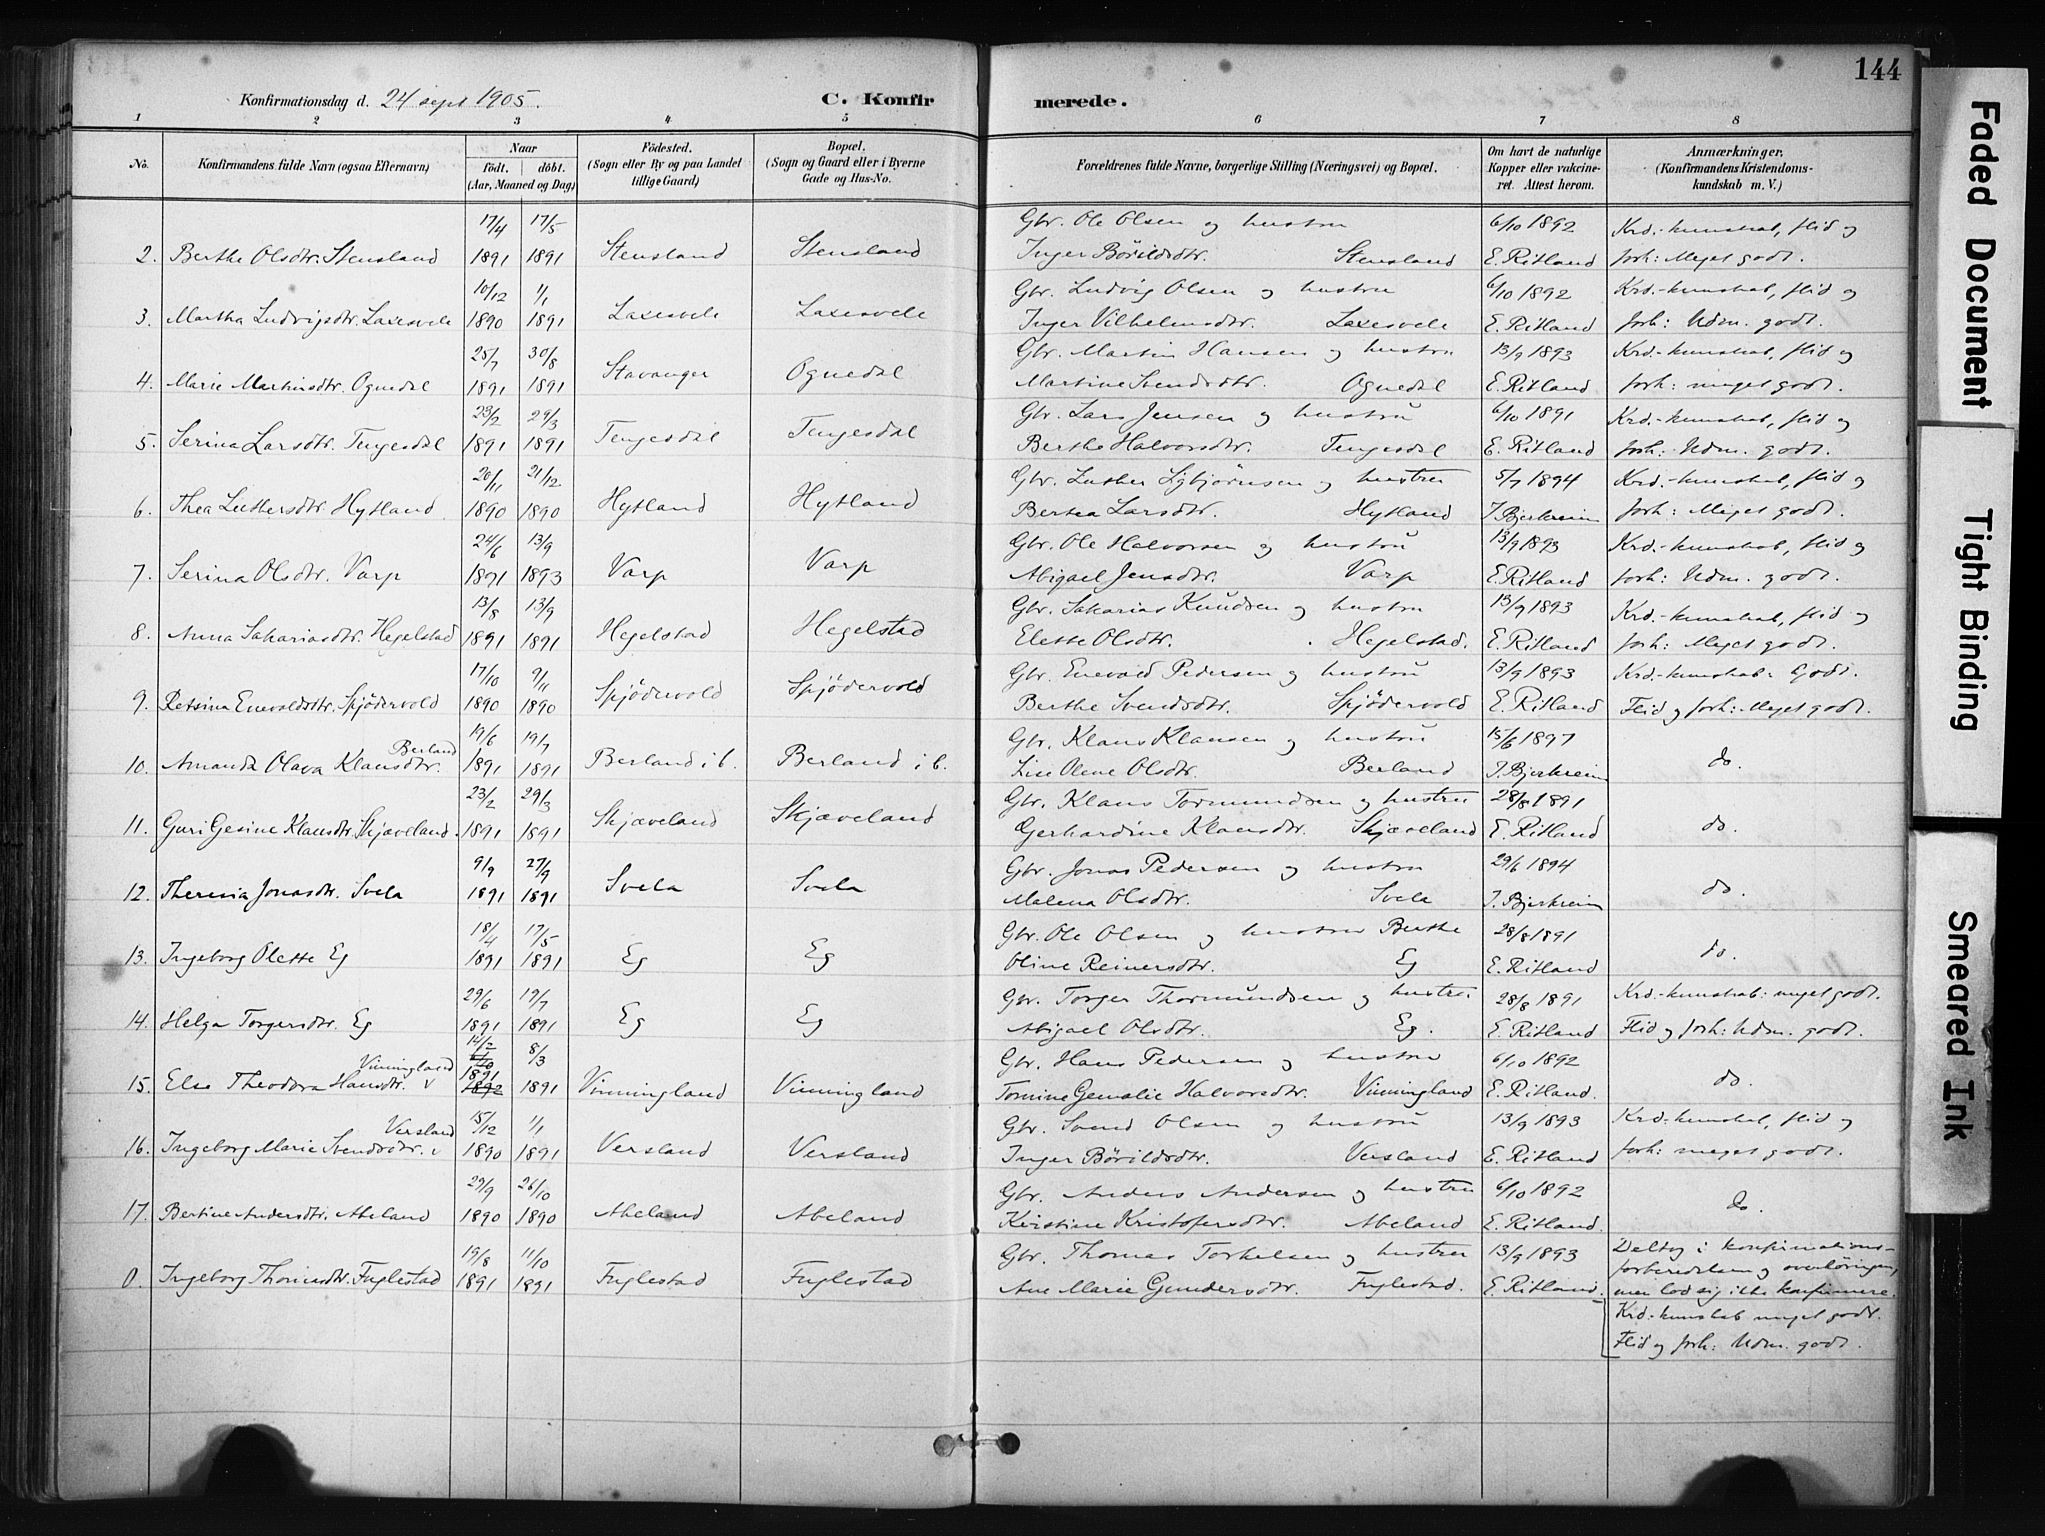 144
Konfirmationsdag d. 24 sept 1905.
C. Konfirmerede.
1 2 3 4 5 6 7 8
No. Konfirmandens fulde Navn (ogsaa Efternavn) Naar födt. döbt. (Aar, Maaned og Dag) Födested. (Sogn eller By og paa Landet tillige Gaard) Bopæl. (Sogn og Gaard eller i Byerne Gade og Hus-No. Forældrenes fulde Navne, borgerlige Stilling (Næringsvei) og Bopæl. Om havt de naturlige Kopper eller vakcineret. Attest herom. Anmærkninger, (Konfirmandens Kristendomskundskab m. V.)
17/4 17/5 Gbr. Ole Olsen og hustru 6/10 1892 Krd.-kunskab, flid og
2. Berthe Olsdtr. Stensland 1891 1891 Stensland Stensland Inger Börildsdtr. Stensland E. Ritland forh: Meget godt.
10/12 1/1 Gbr. Ludvig Olsen og hustru 6/10 1892 Krd.-kunskab, flid og
3. Martha Ludvigsdtr. Laxesvele 1890 1891 Laxesvele Laxesvele Inger Vilhelmsdtr. Laxesvele E. Ritland forh: Udm. godt.
25/7 30/8 Gbr. Martin Hansen og hustru 13/9 1893 Krd.-kunskab, flid og
4. Marie Martinsdtr. Ognedal 1891 1891 Stavanger Ognedal Martine Svendsdtr. Ognedal E. Ritland forh: meget godt.
23/2 29/3 Gbr. Lars Jensen og hustru 6/10 1891 Krd.-kunskab, flid og
5. Serina Larsdtr. Tengesdal 1891 1891 Tengesdal Tengesdal Berthe Halvorsdtr. Tengesdal E. Ritland forh: Udm. godt.
20/11 21/12 Gbr. Luther Sigbjörnsen og hustru 5/7 1894 Krd.-kunskab, flid og
6. Thea Luthersdtr. Hytland 1890 1890 Hytland Hytland Bertea Larsdtr. Hytland J. Bjerkreim forh: Meget godt.
24/6 13/9 Gbr. Ole Halvorsen og hustru 13/9 1893 Krd.-kunskab, flid og
7. Serina Olsdtr. Varp 1891 1893 Varp Varp Abigael Jensdtr. Varp E. Ritland forh: Udm. godt.
13/8 13/9 Gbr. Sakarias Knudsen og hustru 13/9 1893 Krd.-kunskab, flid og
8. Anna Sakariasdtr. Hegelstad 1891 1891 Hegelstad Hegelstad Elette Olsdtr. Hegelstad. E. Ritland forh: Meget godt.
17/10 9/11 Gbr. Enevald Pedersen og hustru 13/9 1893 Krd.-kunskab: Godt.
9. Retsina Enevoldsdtr. Spjödervold 1890 1890 Spjödervold Spjödervold Berthe Svendsdtr. Spjödervold E. Ritland Flid og forh: Meget godt.
Berland 19/6 19/7 Gbr. Klaus Klausen og hustru 15/6 1897
10. Amanda Olava Klausdtr. 1891 1891 Berland i b. Berland i b. Lise Olene Olsdtr. Berland J. Bjerkreim do.
23/2 29/3 Gbr. Klaus Tormundsen og hustru 28/8 1891
11. Guri Gesine Klausdtr. Skjæveland. 1891 1891 Skjæveland Skjæveland Gerhardine Klausdtr. Skjæveland E. Ritland do.
9/9 27/9 Gbr. Jonas Pedersen og hustru 29/6 1894
12. Theresia Jonasdtr. Svela 1891 1891 Svela Svela Malena Olsdtr. Svela J. Bjerkreim do.
18/4 17/5 Gbr. Ole Olsen og hustru Berthe 28/8 1891
13. Ingeborg Olette Eg 1891 1891 Eg Eg Oline Reinersdtr. Eg E. Ritland do.
29/6 19/7 Gbr. Torger Thormundsen og hustru 28/8 1891 Krd.-kunskab: meget godt.
14. Helga Torgersdtr. Eg 1891 1891 Eg Eg Abigael Olsdtr. Eg. E. Ritland Flid og forh: Udm. godt.
Vinningland 14/2 6/10 8/3 Gbr. Hans Pedersen og hustru 6/10 1892
15. Else Theodora Hansdtr. v 1891 1892 1891 Vinningland Vinningland Tomine Gemalie Halvorsdtr. Vinningland E. Ritland. do.
Versland 15/12 1/1 Gbr. Svend Olsen og hustru 13/9 1893 Krd.-kunskab, flid og
16. Ingeborg Marie Svendsdtr. v 1890 1891 Versland Versland Inger Börildsdtr. Versland E. Ritland forh: meget godt.
29/9 26/10 Gbr. Anders Andersen og hustru 6/10 1892
17. Bertine Andersdtr. Abeland 1890 1890 Abeland Abeland Kirstine Kristofersdtr. Abeland E. Ritland. do.
19/8 11/10 Gbr. Thomas Torkelsen og hustru 13/9 1893 Deltog i konfirmations-
0. Ingeborg Thomasdtr. Fuglestad 1891 1891 Fuglestad Fuglestad Ane Marie Gundersdtr. Fuglestad. E. Ritland. forberedelsen og overhöringen,
men lod sig ikke konfirmere.
Krd.-kunskab meget godt.
Flid og forh: Udm. godt.
Faded Document
Tight Binding
Smeared Ink